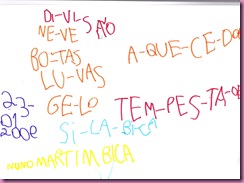 DI-VI-SÃO
NE-VE
BO-TAS
LU-VAS
GE-LO
A-QUE-CE-DO
TEM-PES-TA-
23-
01
SI-LA-BI-CA
NUNO MARTIM BICA